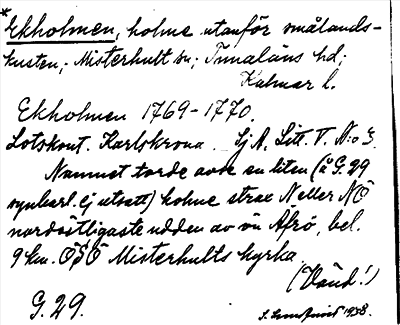 *Ekholmen, holme utanför smålands-
kusten; Misterhult sn; Tunaläns hd;
Kalmar l.
Ekholmen 1769-1770.
Lotskont. Karlskrona. Sj A. Litt. V. N:o 3.
Namnet torde avse en liten (å G.29
synbarl. ej utsatt) holme strax N eller NÖ
nordöstligaste udden av ön Äfrö, bel.
9 km. ÖSÖ Misterhults kyrka.
(Obs!)
G. 29. 1938.